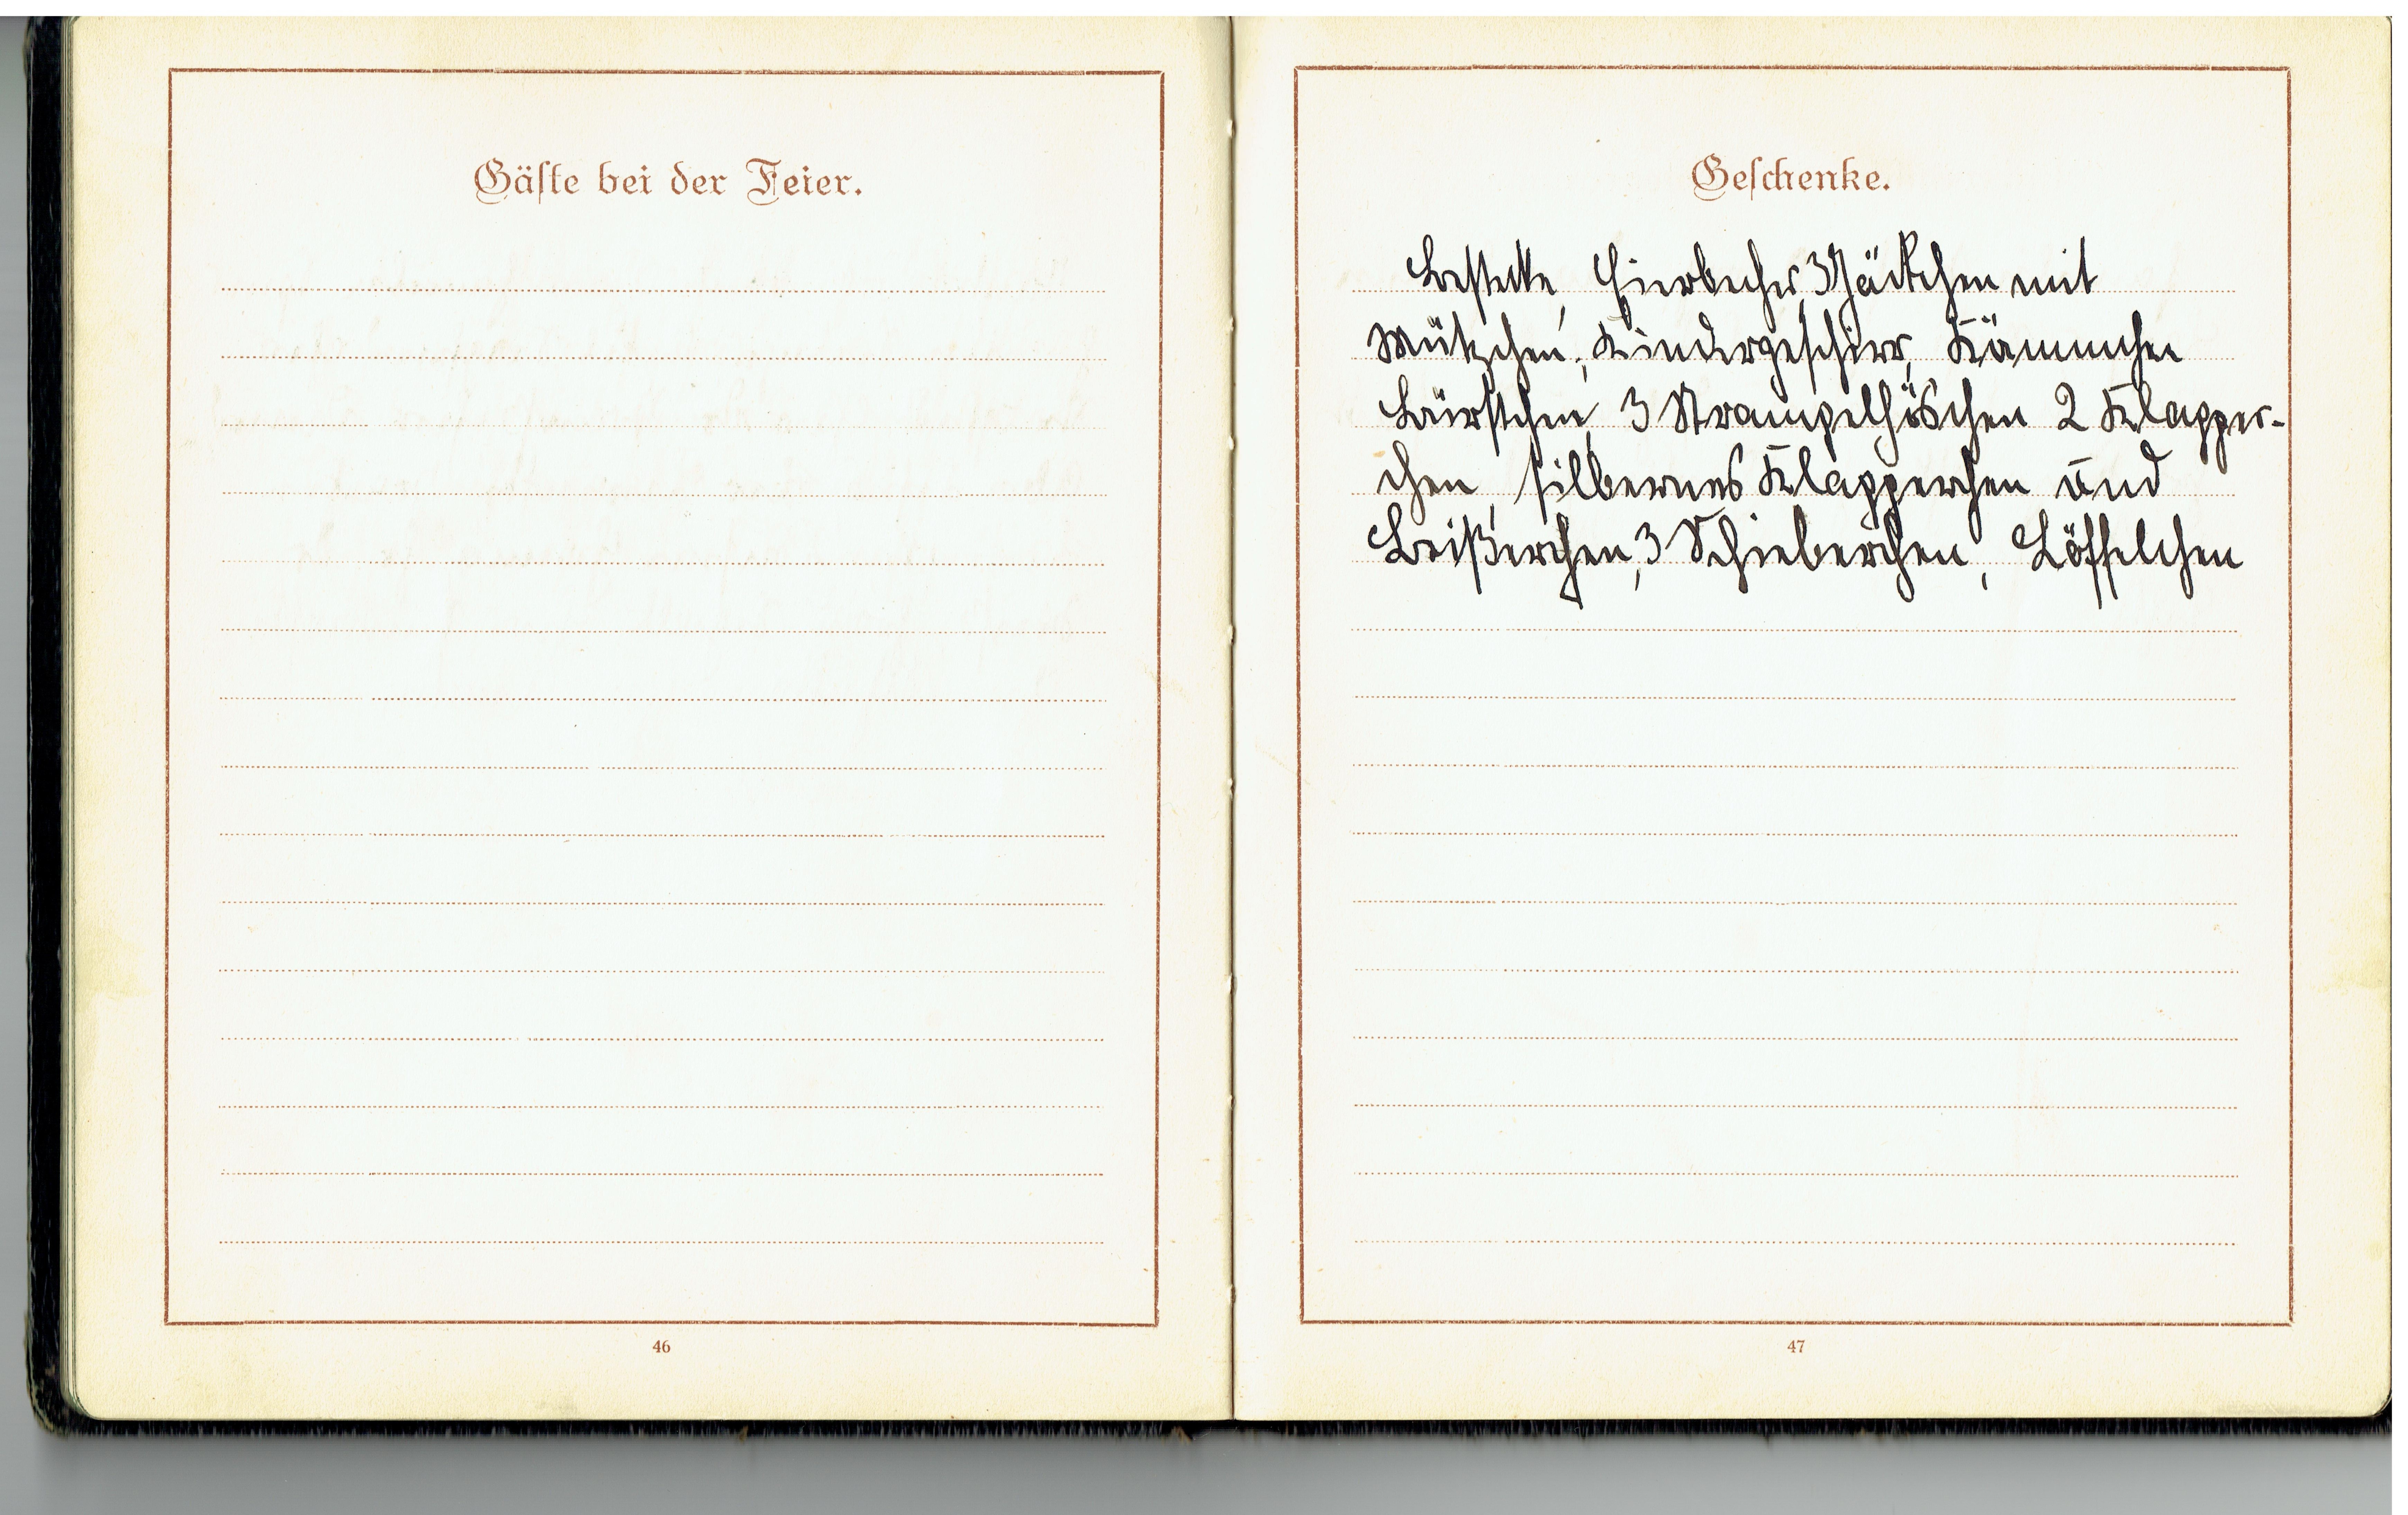 Gäste bei der Feier.
46
Geschenke.
Bestecke, Eierbecher, 3 Jäckchen mit
Mützchen, Kindergeschirr, Kämmchen
Bürstchen, 3 Strampelhöschen 2 Klapper-
chen, silbernes Klapperchen und
Beißerchen, 3 Schieberchen, Löffelchen
47